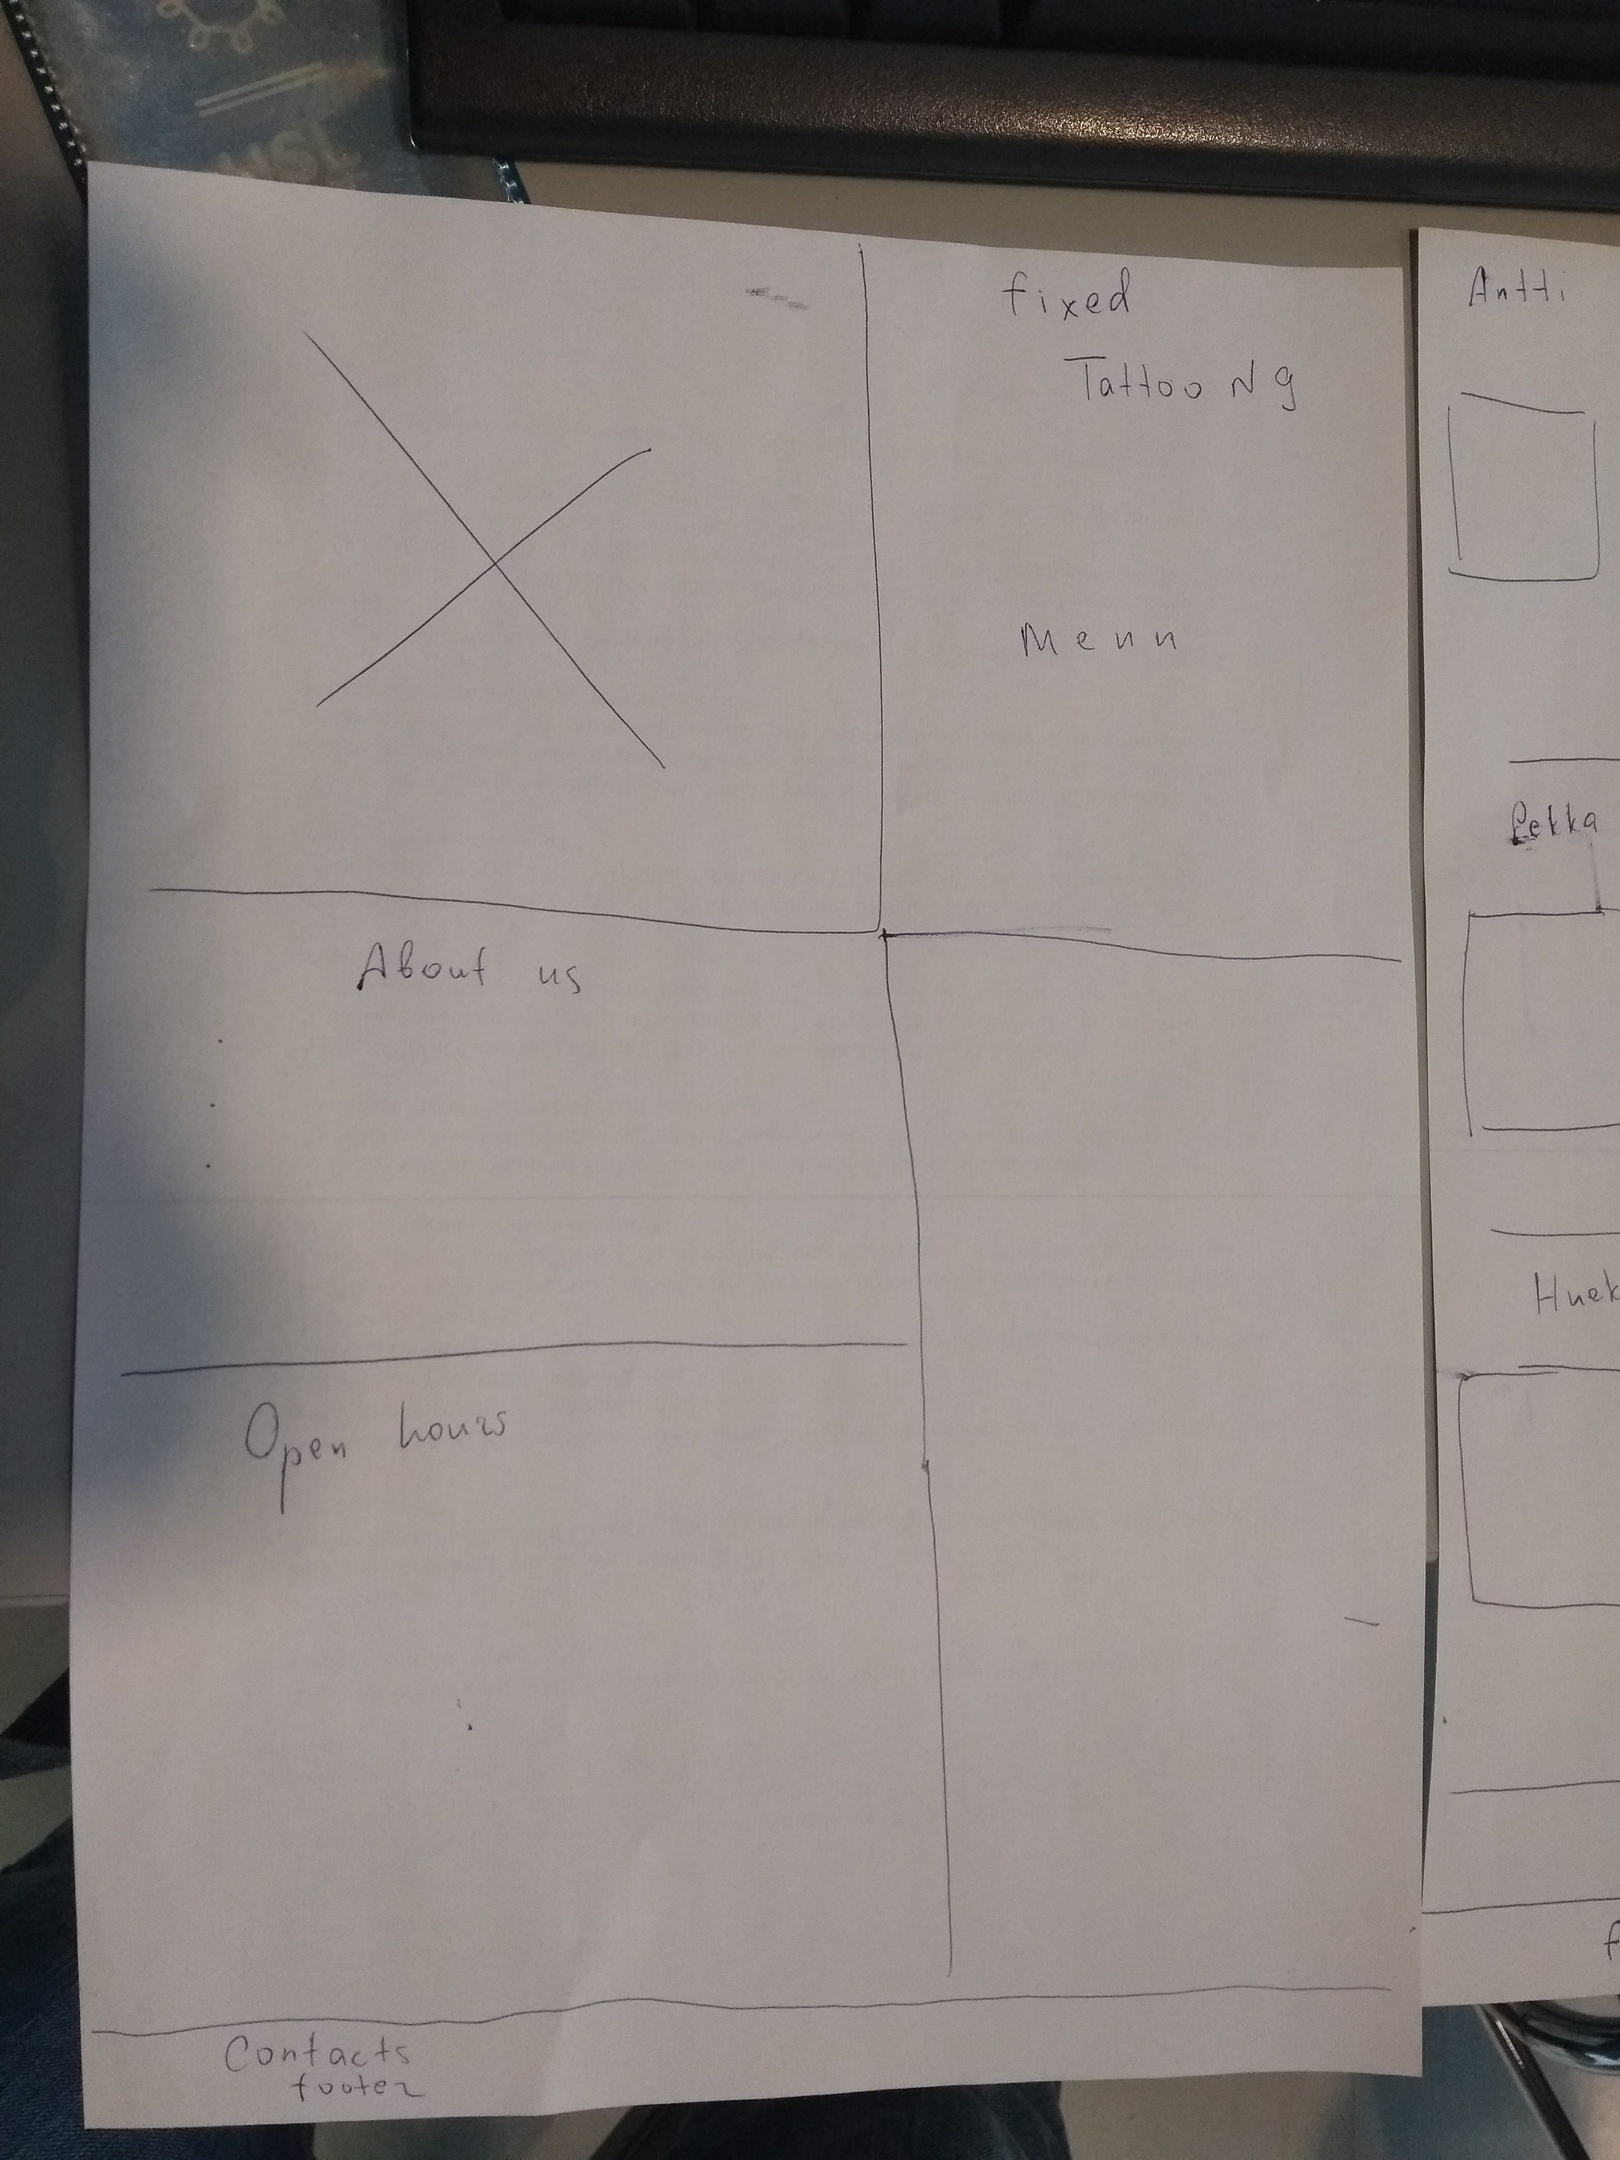 fixed
Tattoo Ng
Menu
About us
Open hours
Contacts
footer
Antti
Pekka